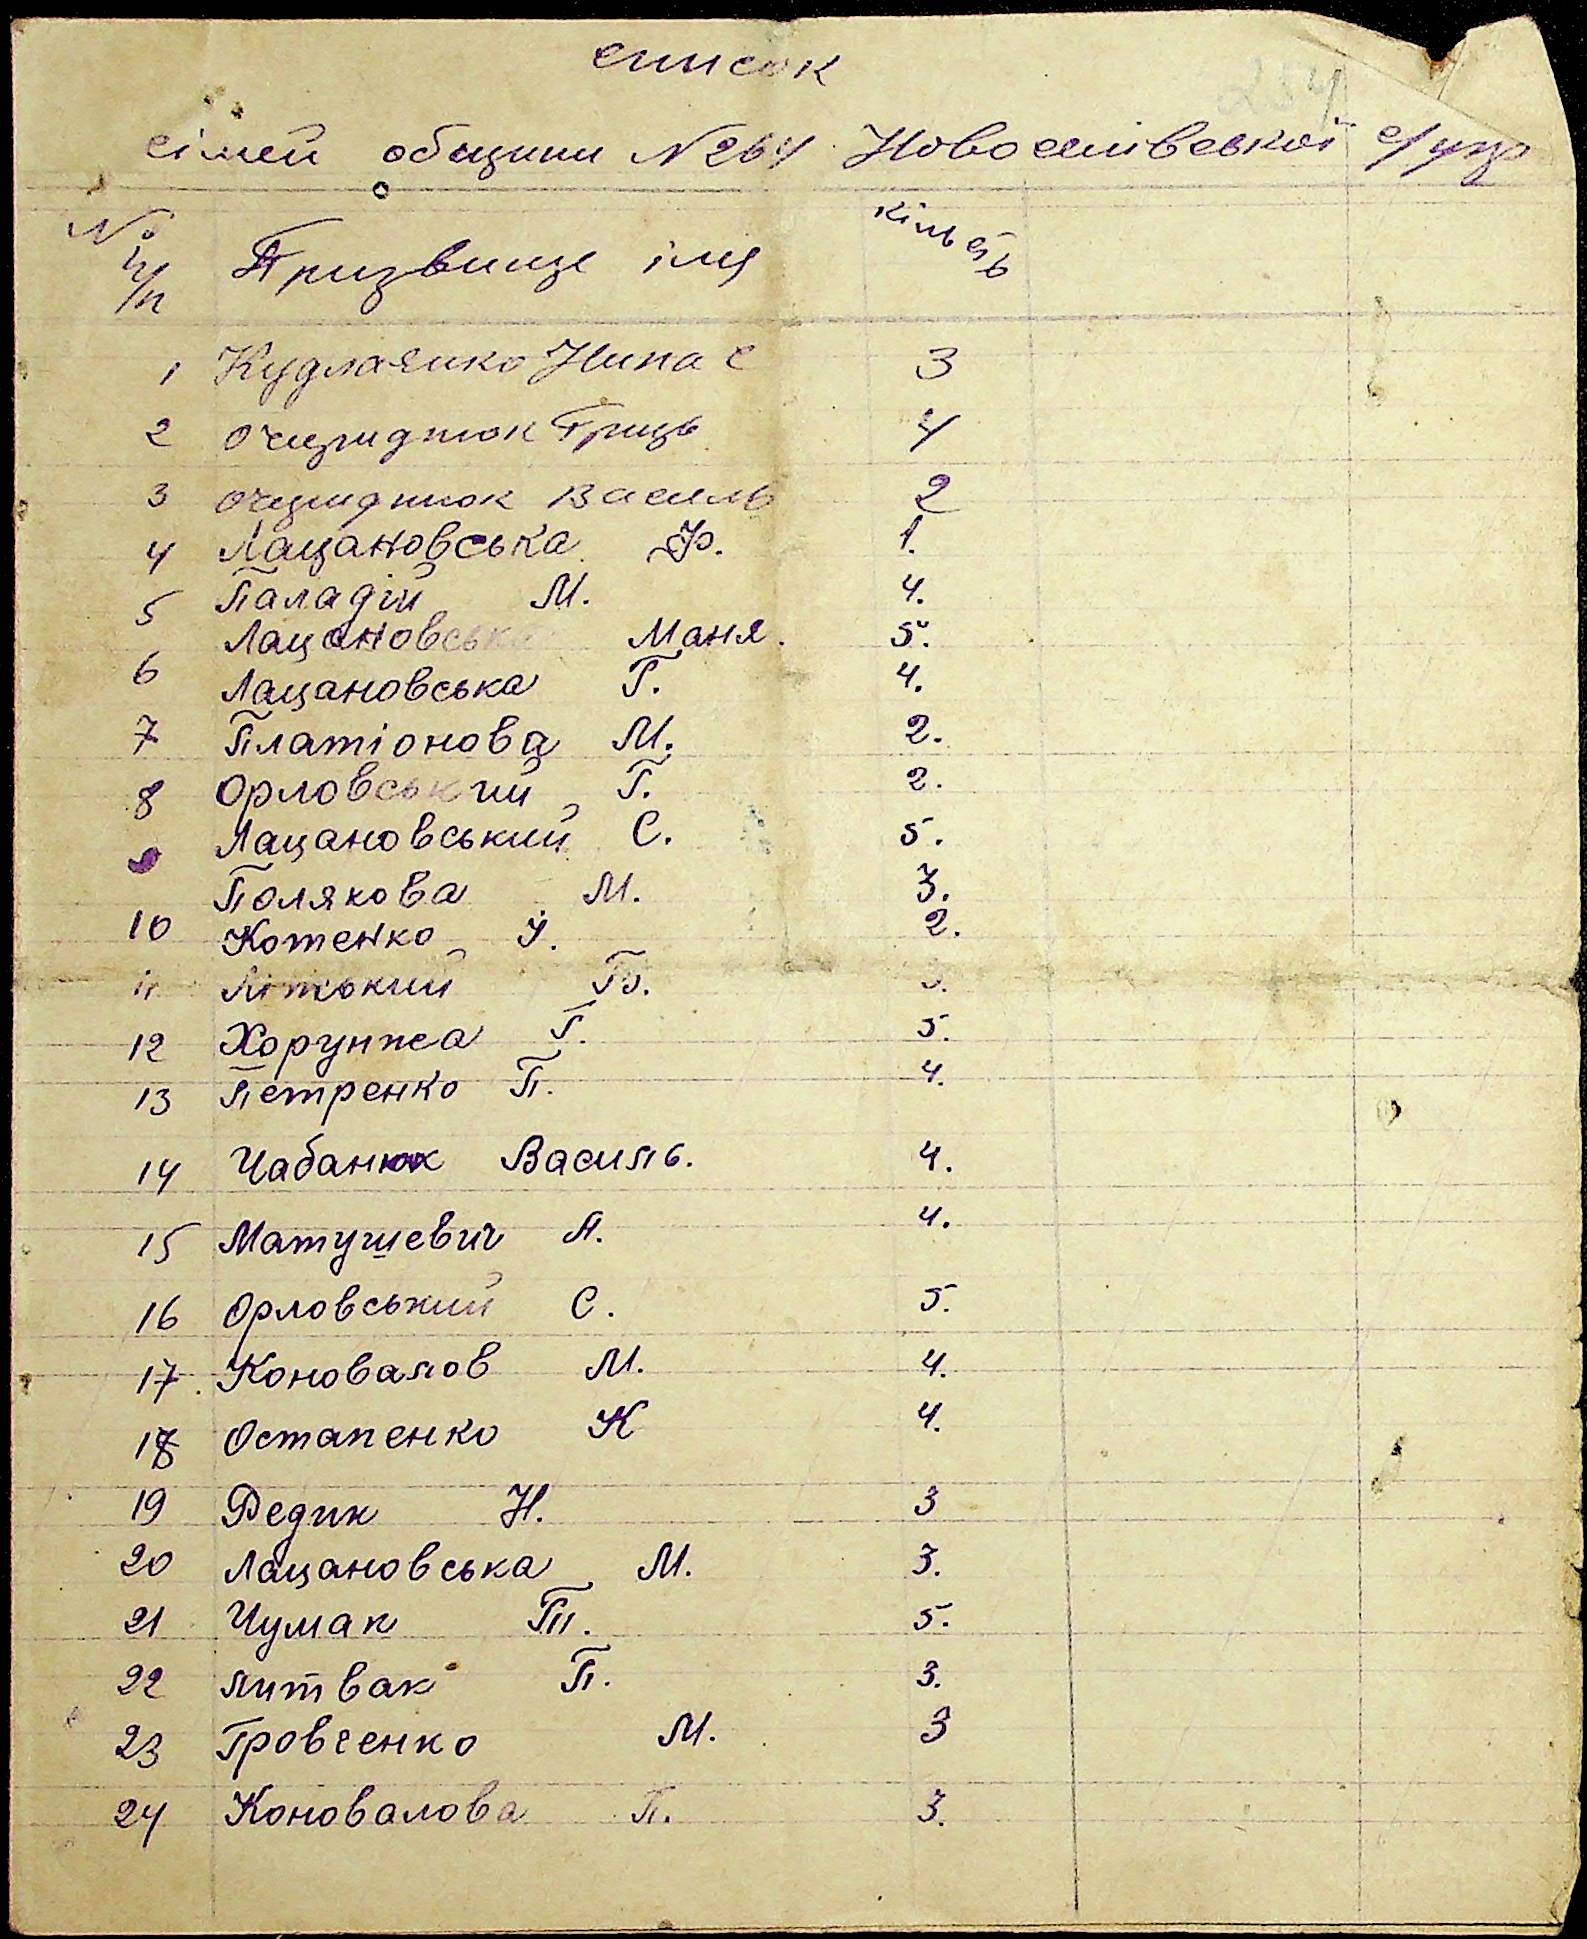 список
сімей общини № 264 Новоселівської с/упр
№ п/п Призвище імя кільсть
1 Кудлаенко Нина С 3
2 Очередток Гриць 4
3 Очередток Василь 2
4 Лацановська Ф. 1.
5 Паладій М. 4.
Лацановська Маня. 5.
6 Лацановська Г. 4.
7 Платіонова М. 2.
8 Орловський Г. 2.
Лацановський С. 5.
Полякова М. 3.
10 Котенко Й. 2.
11 3.
12 Хорунжа Г. 5.
13 Петренко П. 4.
14 Чабанюк Василь. 4.
15 Матушевич А. 4.
16 Орловський С. 5.
17. Коновалов М. 4.
18 Остапенко К 4.
19 Федик Н. 3
20 Лацановська М. 3.
21 Чумак Гп. 5.
22 Литвак П. 3.
23 Гровченко М. 3
24 Коновалова П. 3.